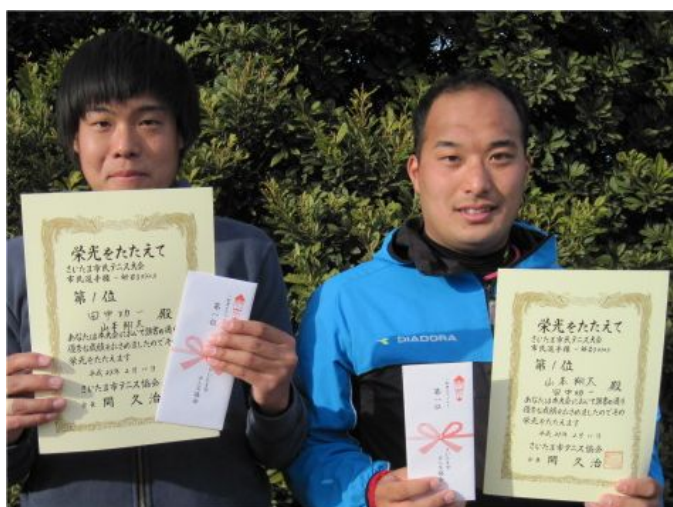 栄光をたたえて
さいたま市民テニス大会
市民選手権
第1位
田中功一 殿
山本翔太
あなたは本大会において頭書の通り
優秀な成績をおさめましたのでその
栄光をたたえます
2月11日
さいたま市テニス協会
会長 関久治
第一位
DIADORA
第一位
栄光をたたえて
さいたま市民テニス大会
市民選手権
第1位
山本翔太 殿
田中功一
あなたは本大会において頭書の通り
優秀な成績をおさめましたのでその
栄光をたたえます
2月11日
さいたま市テニス協会
会長 関久治